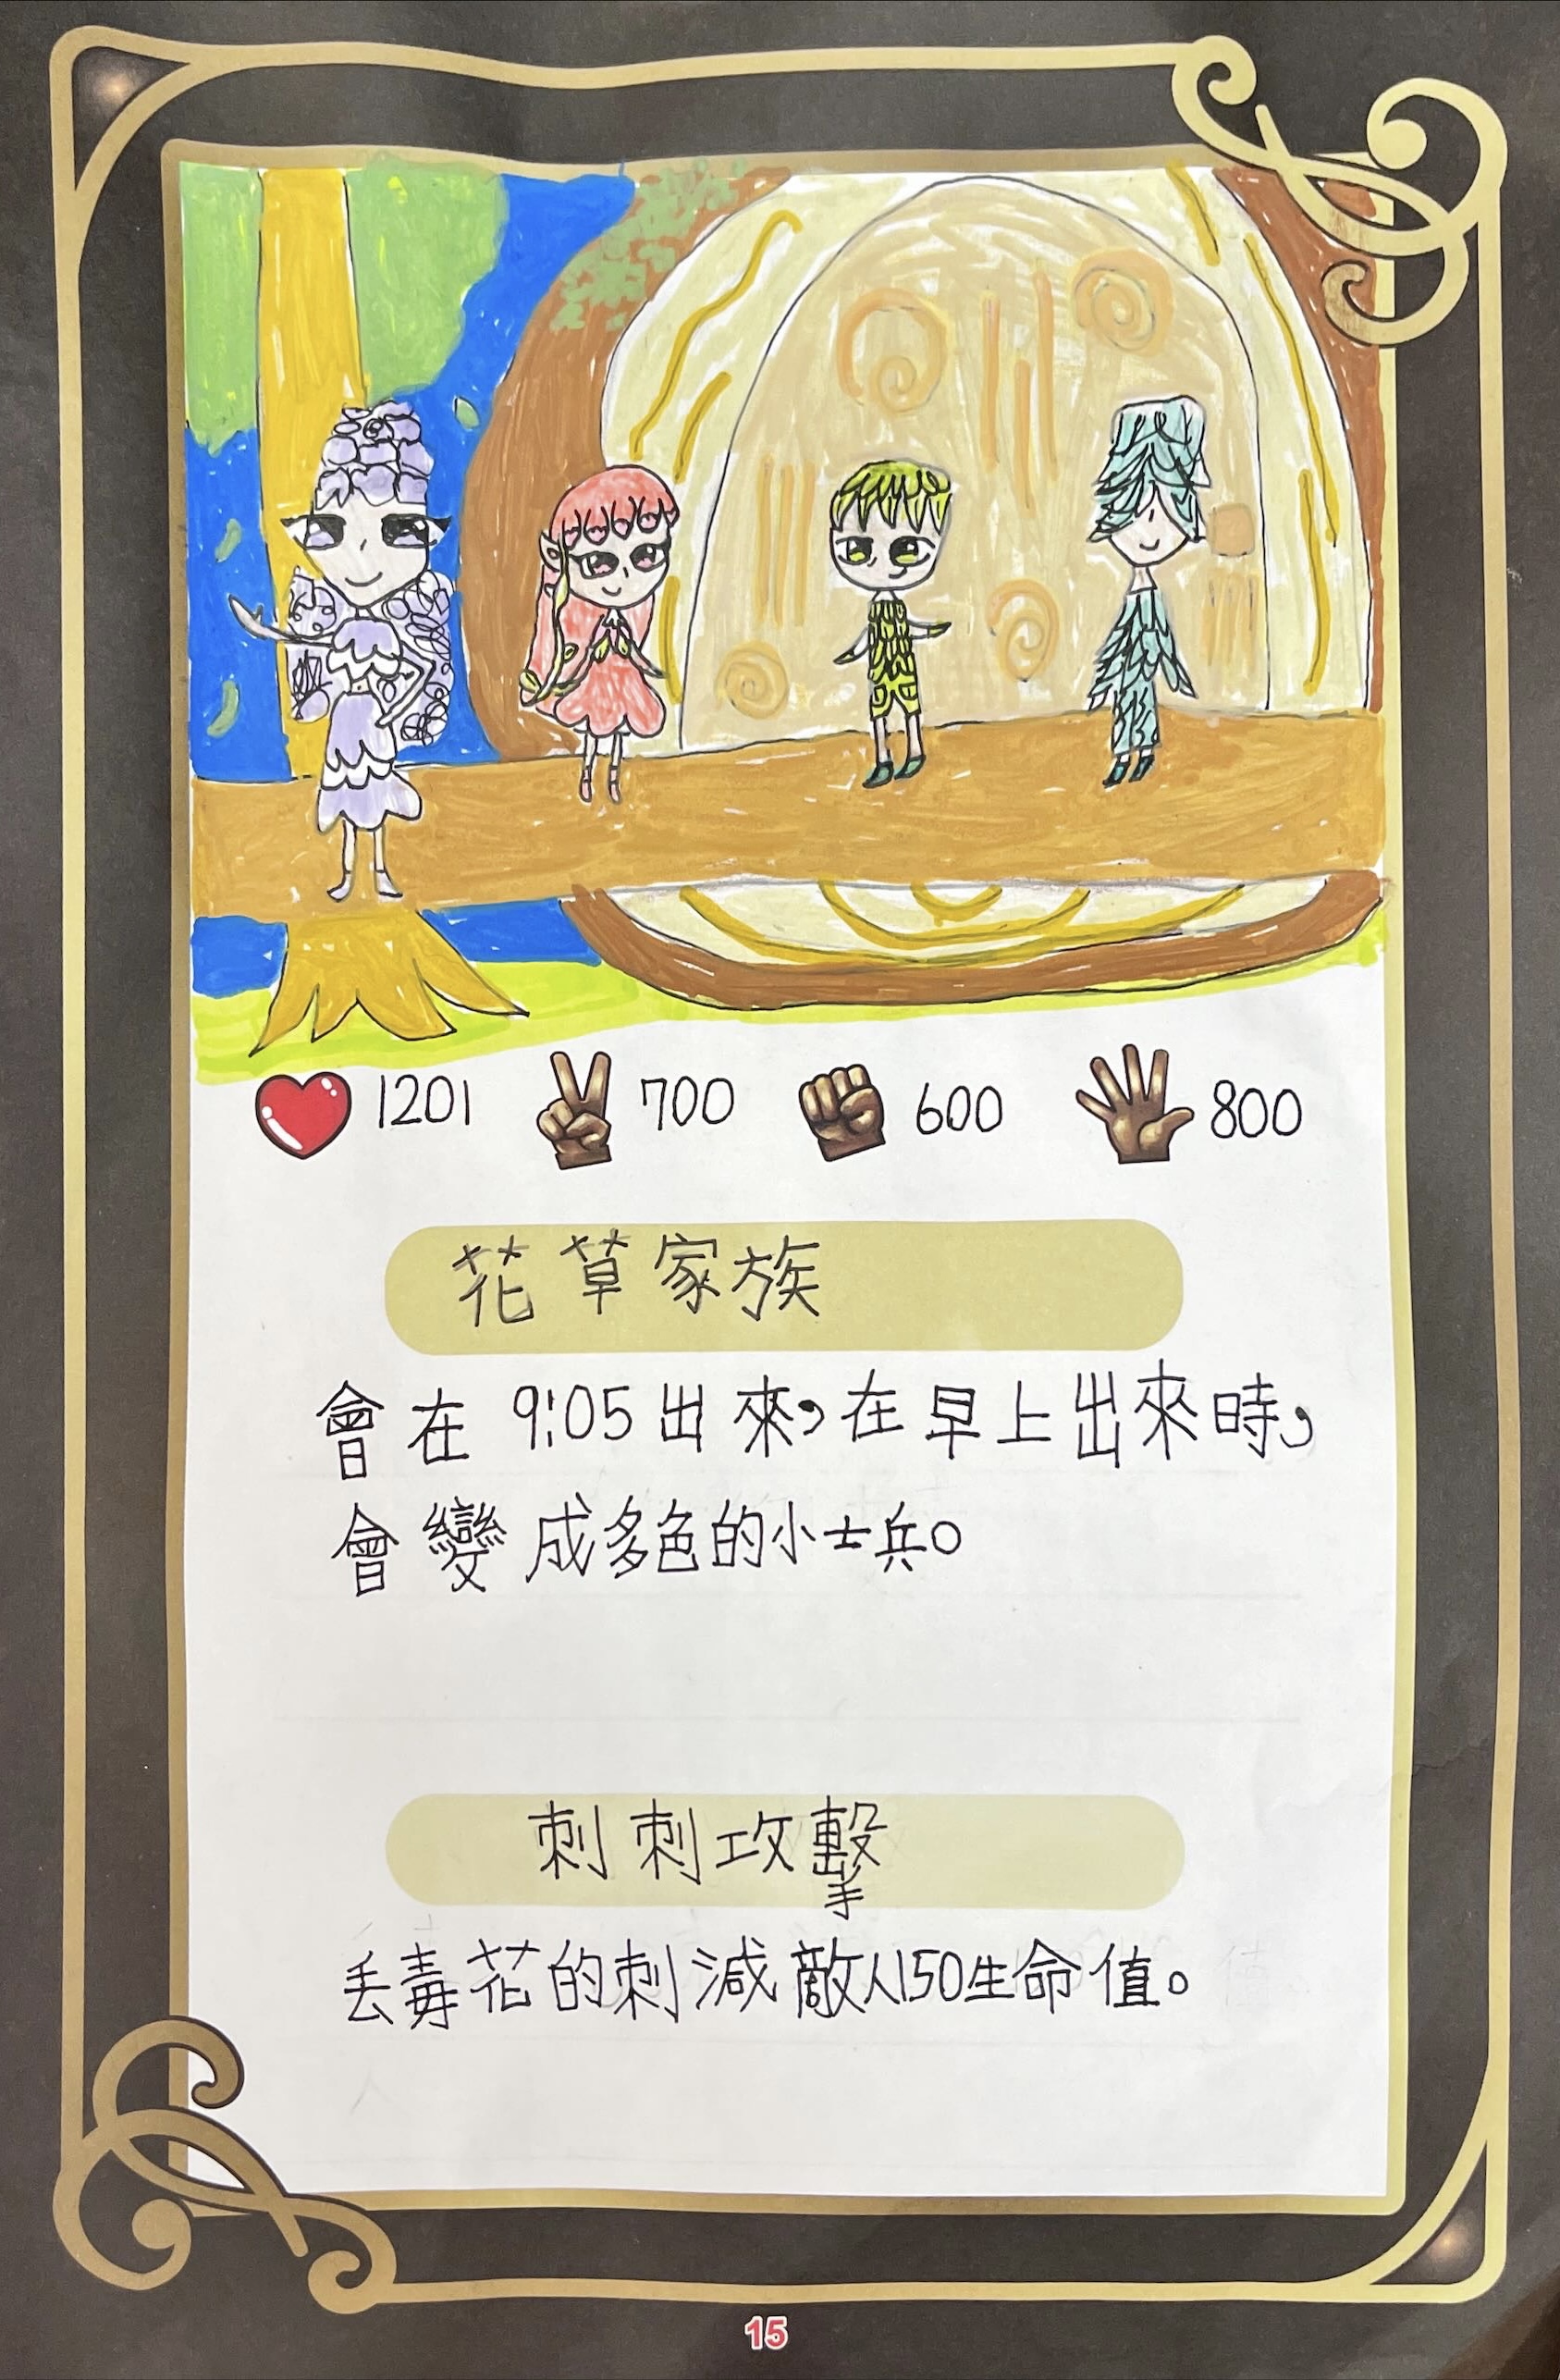 1201 700 600 800
花草家族
會在9:05出來，在早上出來時，
會變成多色的小士兵。
刺刺攻擊
丟毒花的刺減敵人150生命值。
15